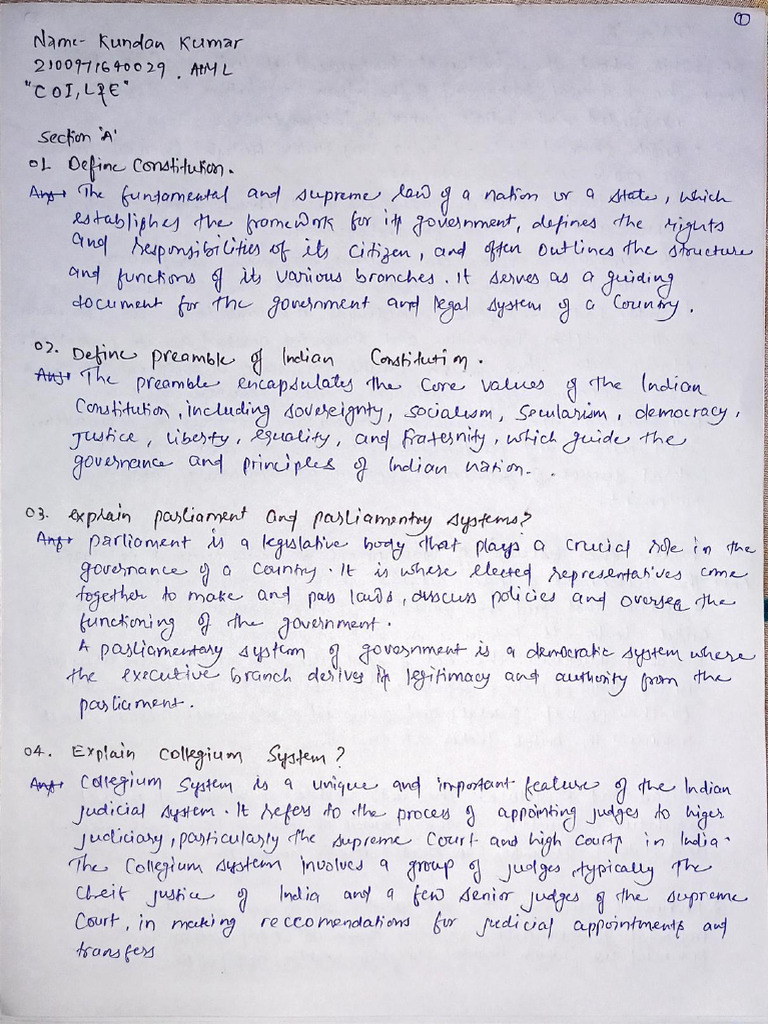 ①
Name- Kundan Kumar
2100971640029. AIML
"COI, LPE"
Section 'A'
01. Define Constitution.
Ans→ The fundamental and supreme law of a nation or a state, which
establishes the framework for its government, defines the rights
and responsibilities of its citizen, and often outlines the structure
and functions of its various branches. It serves as a guiding
document for the government and legal system of a country.
02. Define preamble of Indian Constitution.
Ans→ The preamble encapsulates the core values of the Indian
Constitution, including sovereignty, socialism, secularism, democracy,
justice, liberty, equality, and fraternity, which guide the
governance and principles of Indian nation.
03. explain parliament and parliamentry systems?
Ans→ parliament is a legislative body that plays a crucial role in the
governance of a country. It is where elected representatives come
together to make and pass laws, discuss policies and oversee the
functioning of the government.
A parliamentary system of government is a democratic system where
the executive branch derives its legitimacy and authority from the
parliament.
04. Explain Collegium System?
Ans→ Collegium System is a unique and important feature of the Indian
judicial system. It refers to the process of appointing judges to higer
judiciary, particularly the supreme court and high courts in India.
The Collegium system involves a group of judges, typically the
cheif justice of India and a few senior judges of the supreme
Court, in making reccomendations for judicial appointments and
transfers